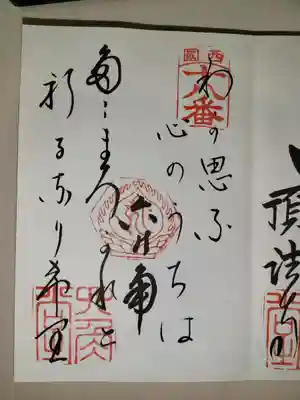 頂法寺
西國
十八番
わが思ふ
心のうちは
六の角
たゞまろかれと
祈るなり希里